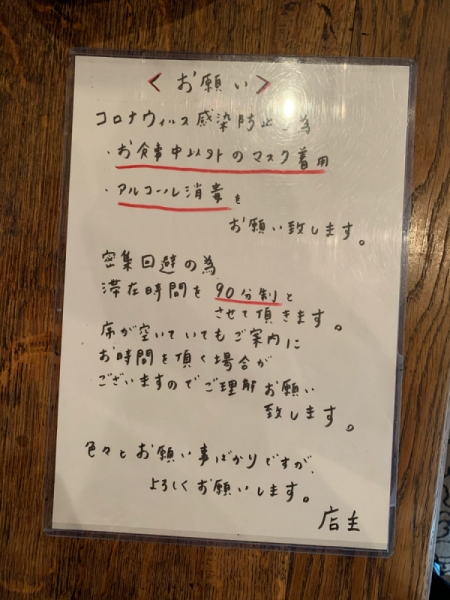 ＜お願い＞
コロナウィルス感染防止の為
・お食事中以外のマスク着用
・アルコール消毒を
お願い致します。
密集回避の為
滞在時間を90分制と
させて頂きます。
席が空いていてもご案内に
お時間を頂く場合が
ございますのでご理解お願い
致します。
色々とお願い事ばかりですが、
よろしくお願いします。
店主